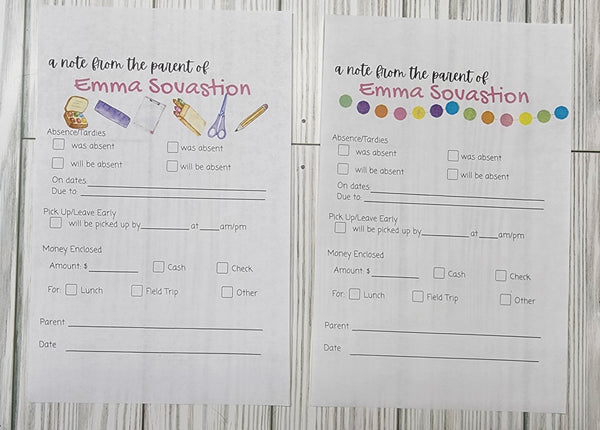 a note from the parent of
Emma Sovastion
Absence/Tardies
was absent
was absent
will be absent
will be absent
On dates
Due to:
Pick Up/Leave Early
will be picked up by at am/pm
Money Enclosed
Amount: $ Cash Check
For: Lunch Field Trip Other
Parent
Date
a note from the parent of
Emma Sovastion
Absence/Tardies
was absent
was absent
will be absent
will be absent
On dates
Due to:
Pick Up/Leave Early
will be picked up by at am/pm
Money Enclosed
Amount: $ Cash Check
For: Lunch Field Trip Other
Parent
Date